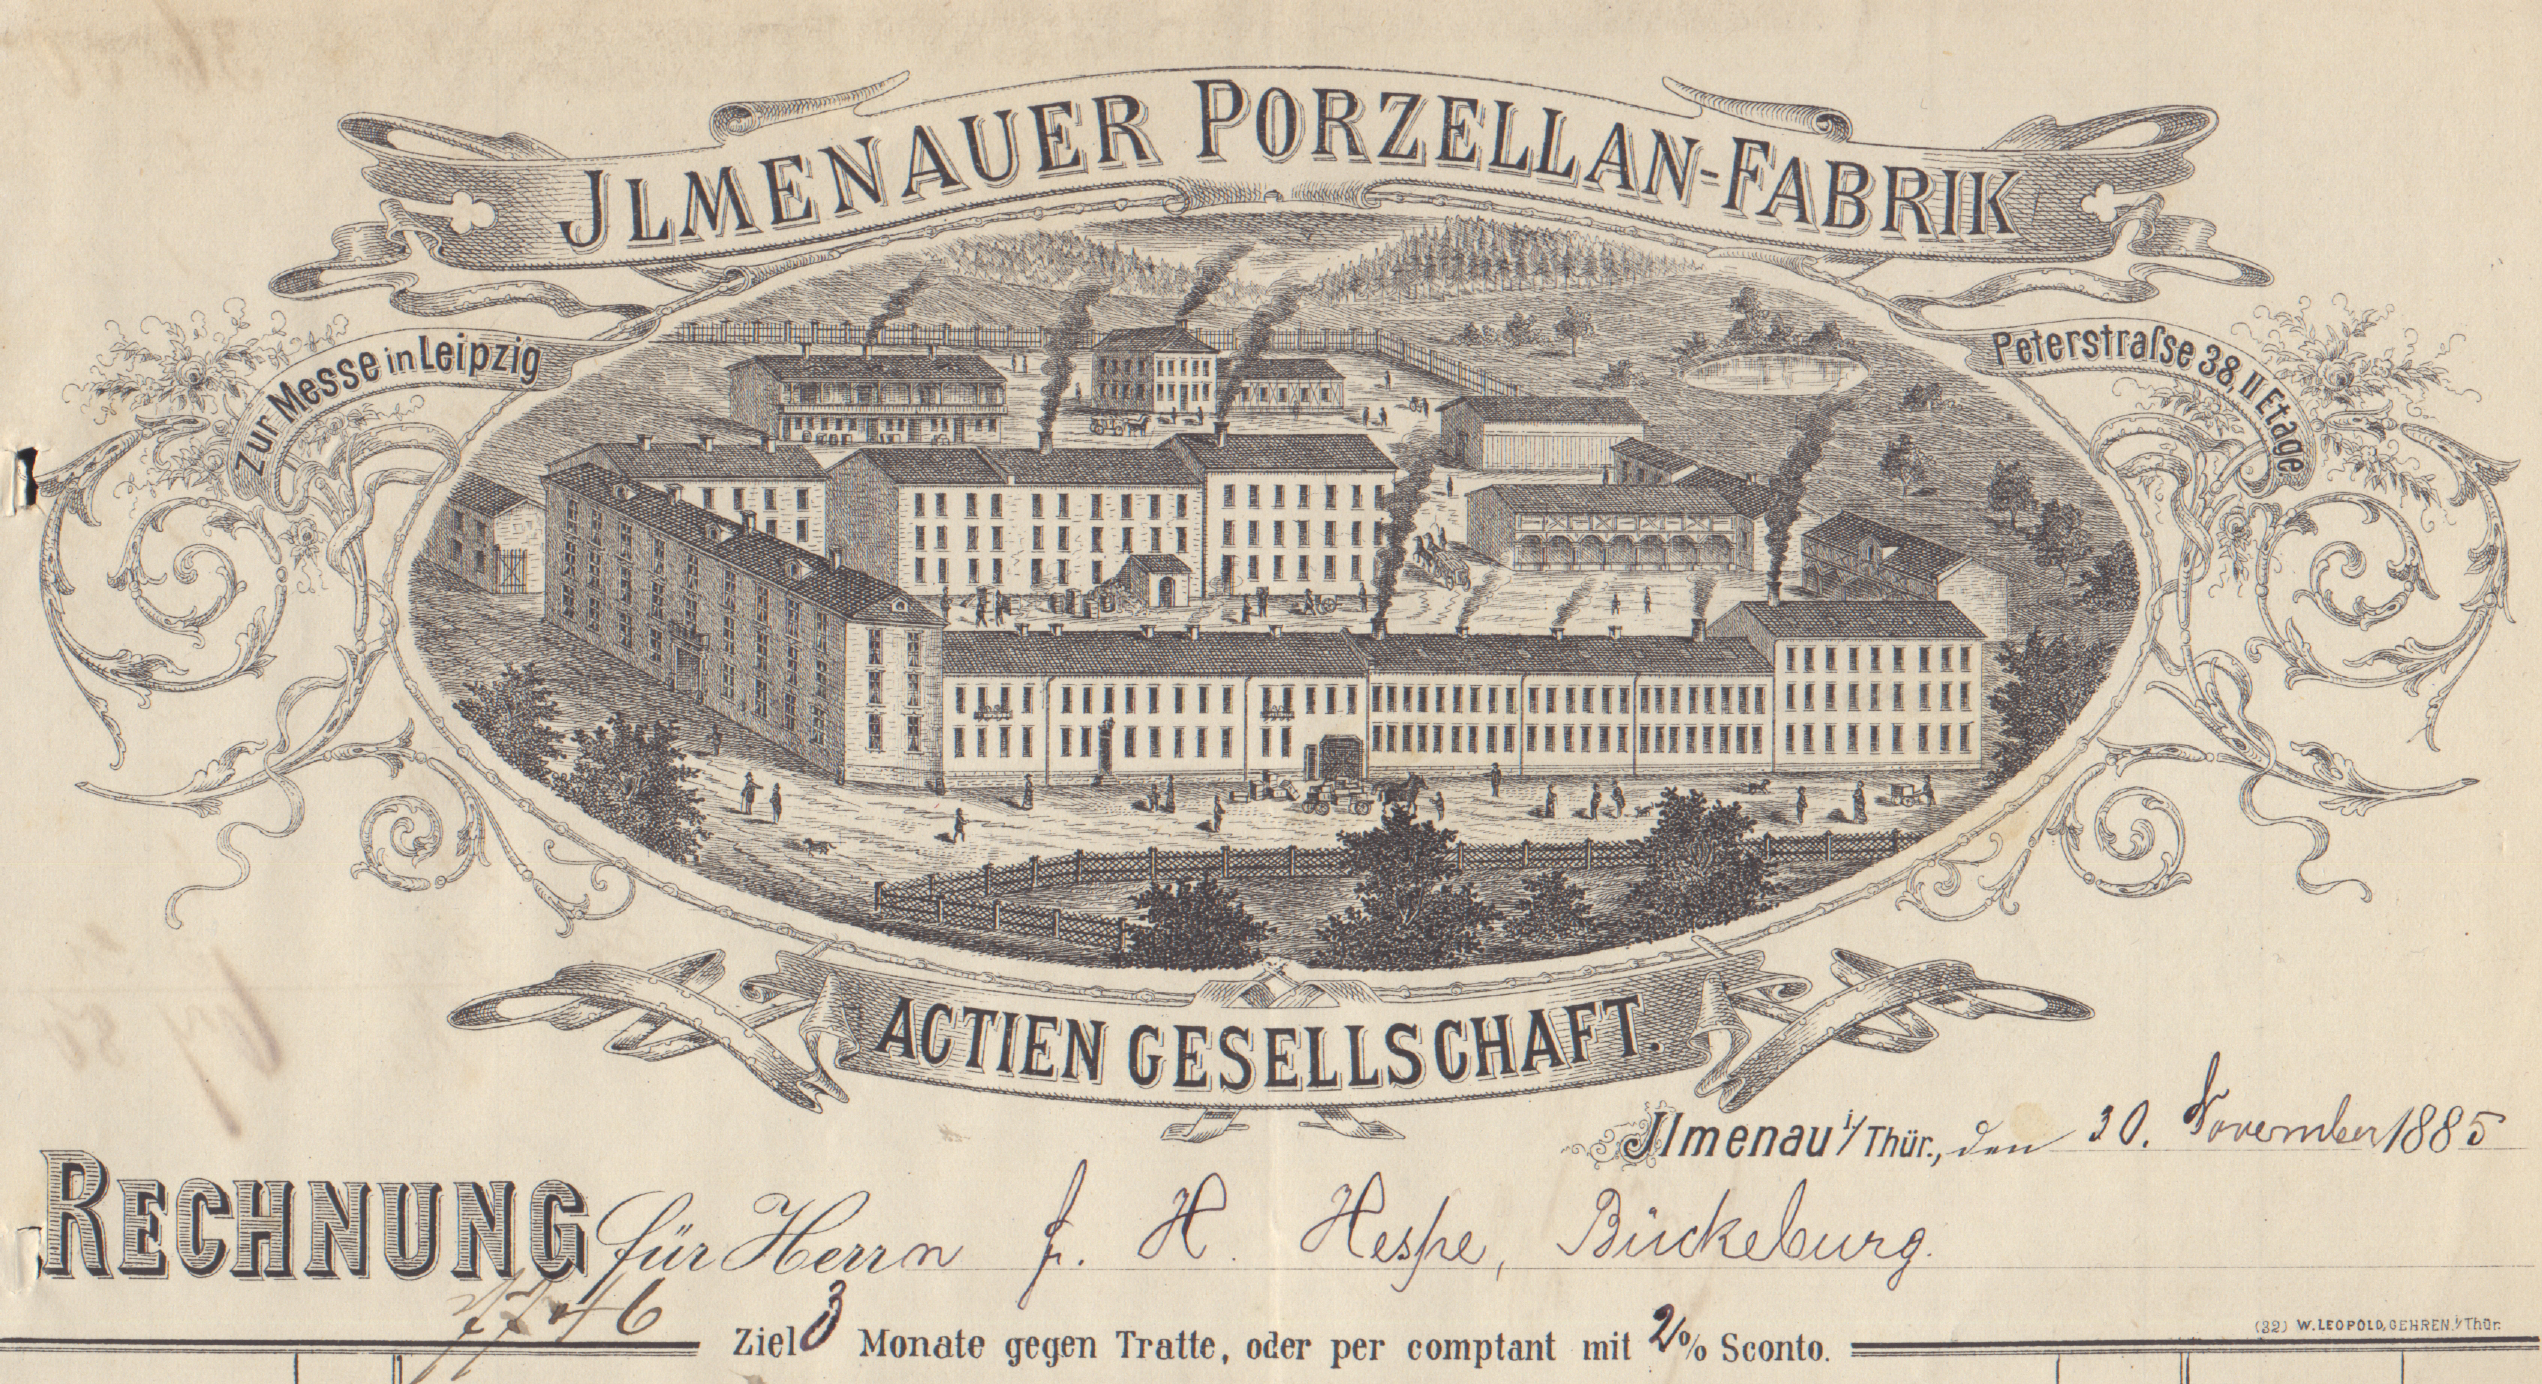 JLMENAUER PORZELLAN-FABRIK
Zur Messe in Leipzig
Peterstraſse 38, II Etage
ACTIEN GESELLSCHAFT.
Jlmenau i/Thür., den 30. November 1885
RECHNUNG für Herrn F. H. Hespe, Bückeburg.
Ziel 3 Monate gegen Tratte, oder per comptant mit 2% Sconto.
(32) W. LEOPOLD, GEHREN i/Thür.